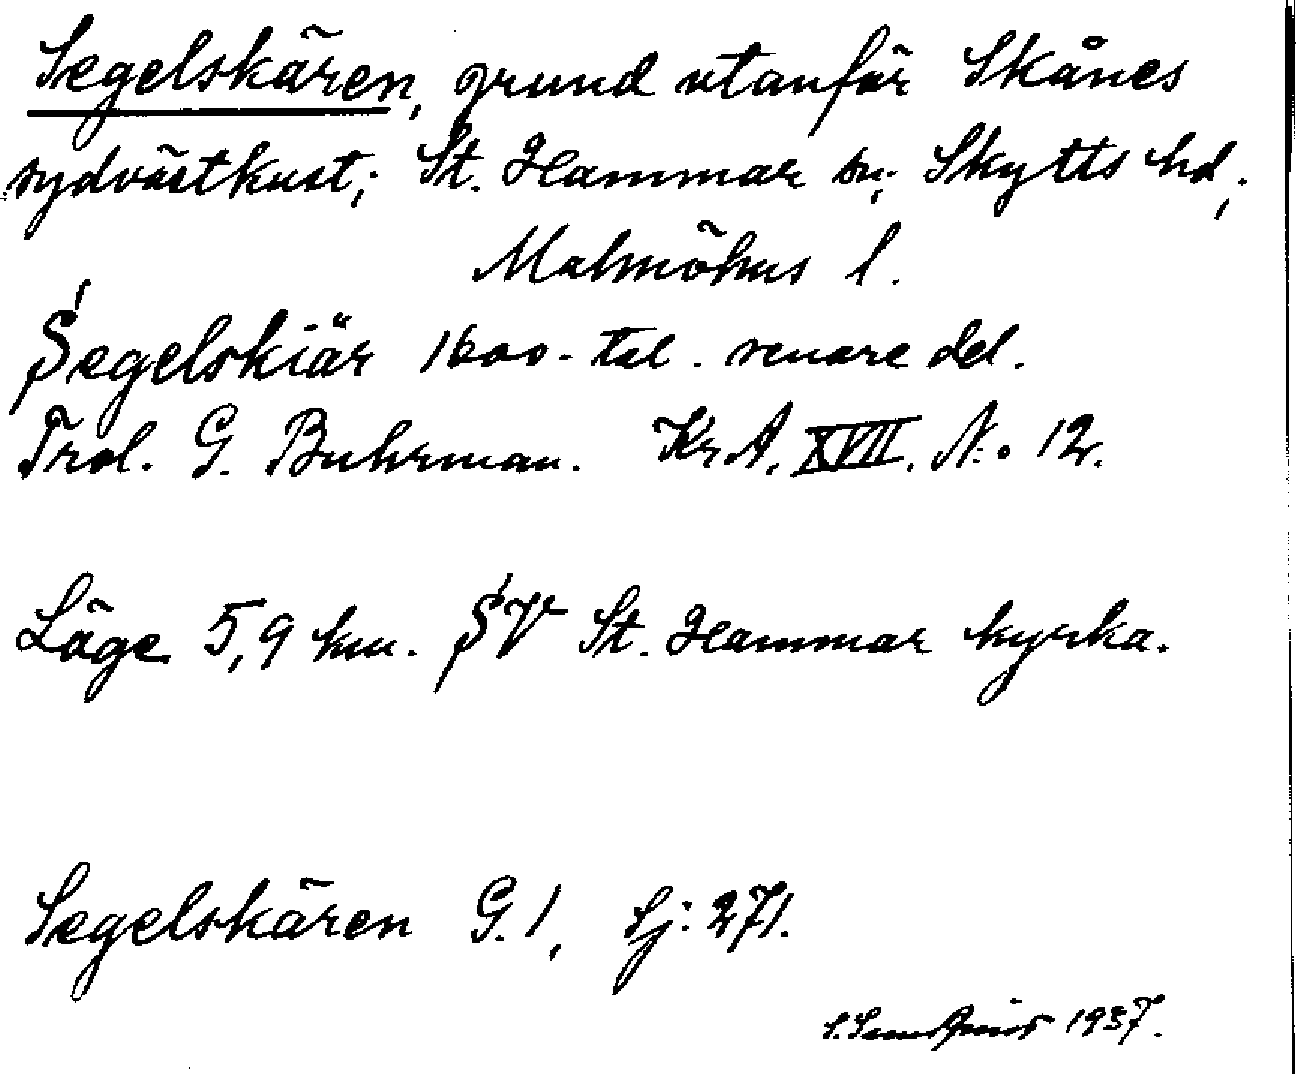 Segelskären, grund utanför Skånes
sydvästkust; St. Hammar sn; Skytts hd;
Malmöhus l.
Segelskiär 1600-tal. senare del.
Trol. G. Buhrman. Kr. A. XVII. N:o 12.
Läge 5,9 km. SV St. Hammar kyrka.
Segelskären G. 1, Sj: 271.
1937.